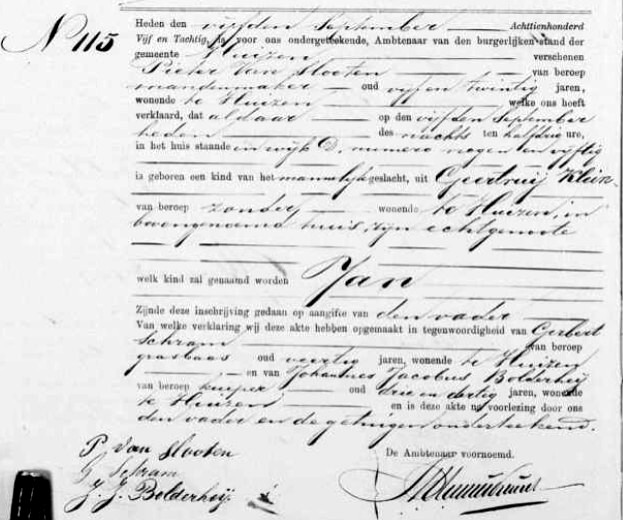 N° 115
Heden den vijfden September Achttienhonderd
Vijf en Tachtig, is voor ons ondergeteekende, Ambtenaar van den burgerlijken stand der
gemeente Huizen verschenen
Pieter van Slooten van beroep
mandenmaker oud vijf en twintig jaren,
wonende te Huizen welke ons heeft
verklaard, dat aldaar op den vijfden September
heden des nachts ten half drie ure,
in het huis staande in wijk D, numero negen en vijftig
is geboren een kind van het mannelijk geslacht, uit Geertruij Klein
van beroep zonder wonende te Huizen, in
bovengenoemd huis, zijn echtgenoote
welk kind zal genaamd worden Jan
Zijnde deze inschrijving gedaan op aangifte van den vader
Van welke verklaring wij deze akte hebben opgemaakt in tegenwoordigheid van Gerbert
Schram van beroep
grasbaas oud veertig jaren, wonende te Huizen
en van Johannes Jacobus Bolderheij
van beroep kuiper oud drie en dertig jaren, wonende
te Huizen en is deze akte na voorlezing door ons
den vader en de getuigen onderteekend.
P. van Slooten
G Schram
J. J. Bolderheij
De Ambtenaar voornoemd.